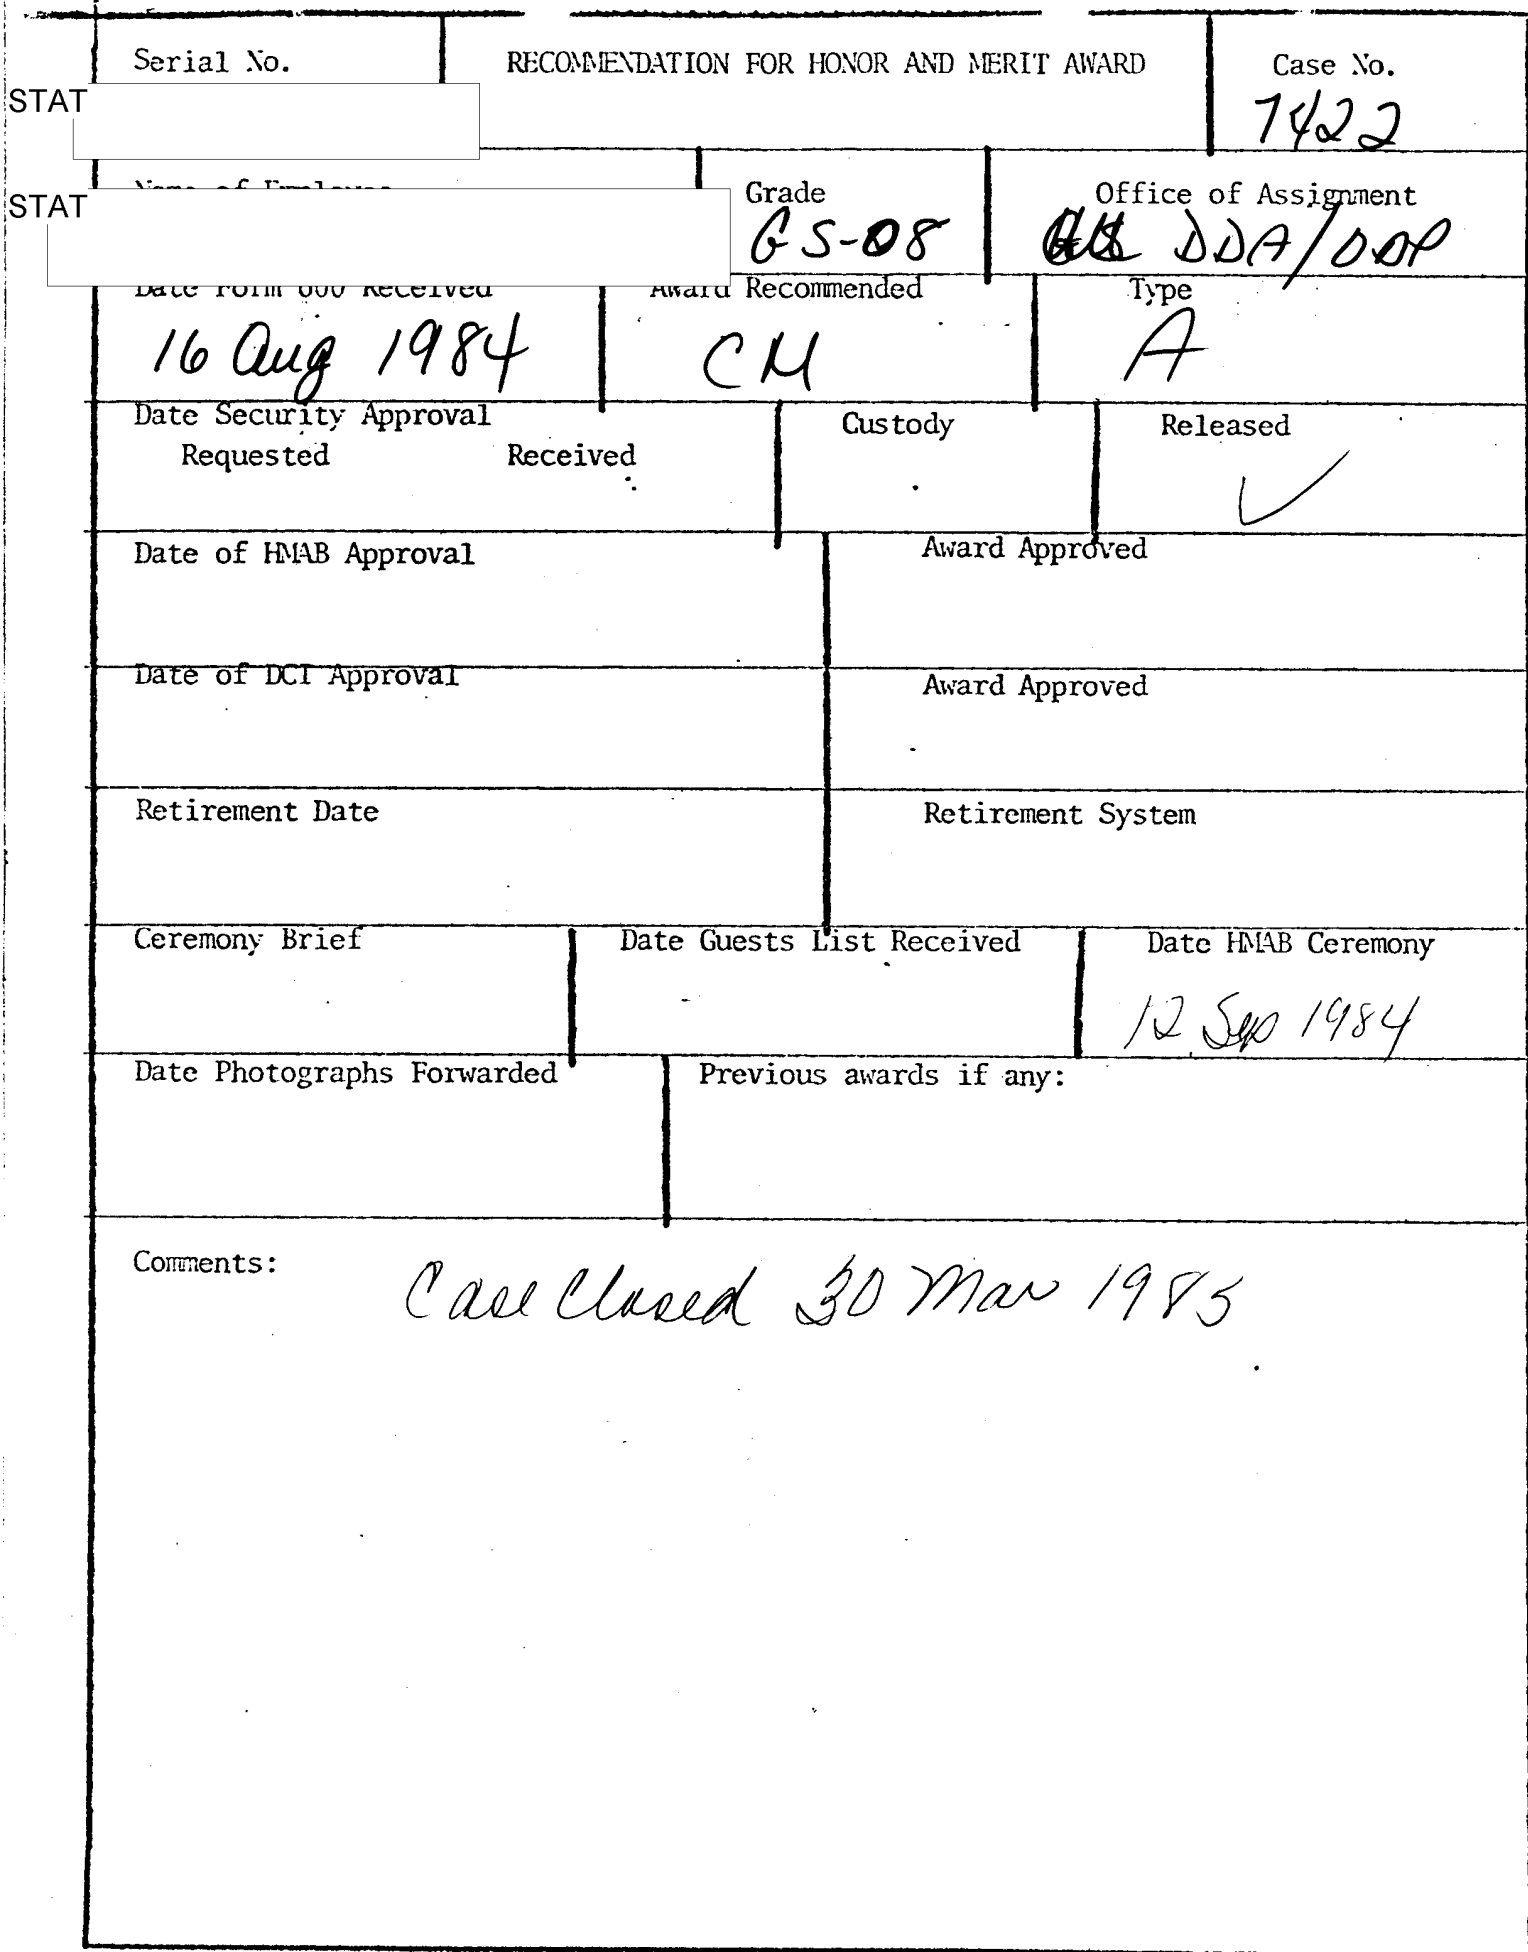 Serial No.
RECOMMENDATION FOR HONOR AND MERIT AWARD
Case No.
STAT
7422
STAT
Name of Employee
Grade
Office of Assignment
GS-08
DDA/ODP
Date Form 600 Received
Award Recommended
Type
16 Aug 1984
CM
A
Date Security Approval
Custody
Released
Requested
Received
Date of HMAB Approval
Award Approved
Date of DCI Approval
Award Approved
Retirement Date
Retirement System
Ceremony Brief
Date Guests List Received
Date HMAB Ceremony
12 Sep 1984
Date Photographs Forwarded
Previous awards if any:
Comments:
Case Closed 30 Mar 1985